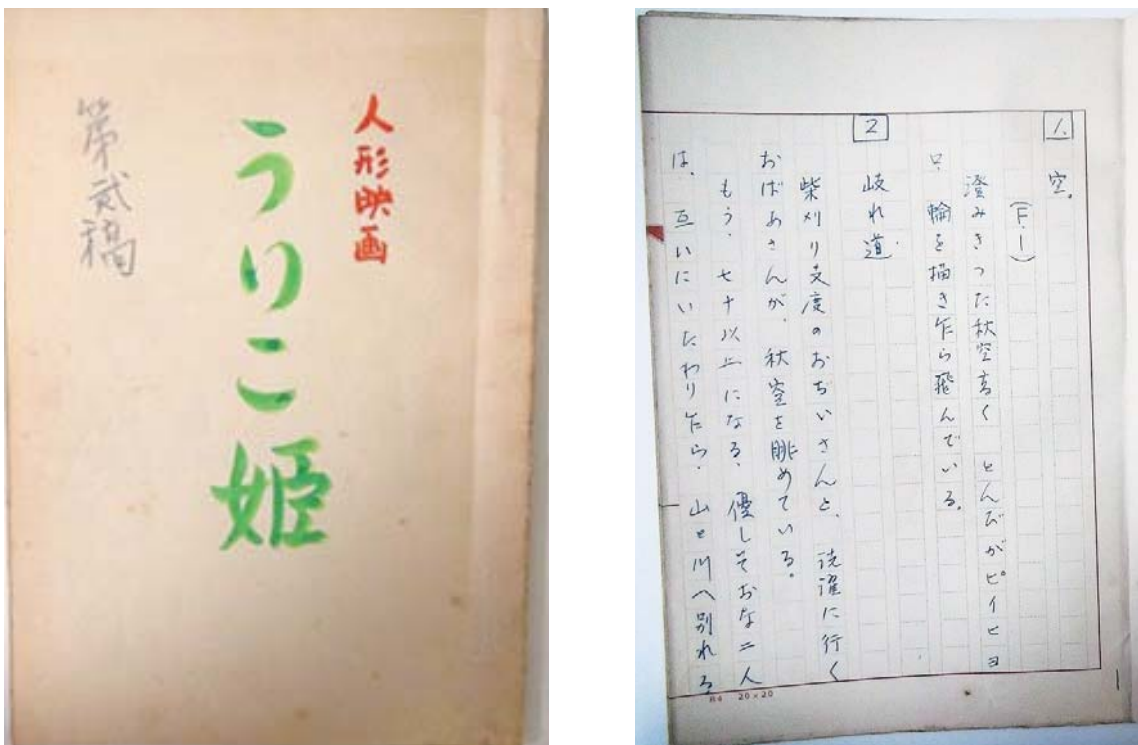 人形映画
うりこ姫
第弐稿
1. 空。
(F・I)
澄みきった秋空高く とんびがピイヒョ
ロ、輪を描き乍ら飛んでいる。
2
岐れ道。
柴刈り支度のおぢいさんと、洗濯に行く
おばあさんが、秋空を眺めている。
もう、七十以上になる、優しそおな二人
は、互いにいたわり乍ら、山と川へ別れる
B4 20×20
1